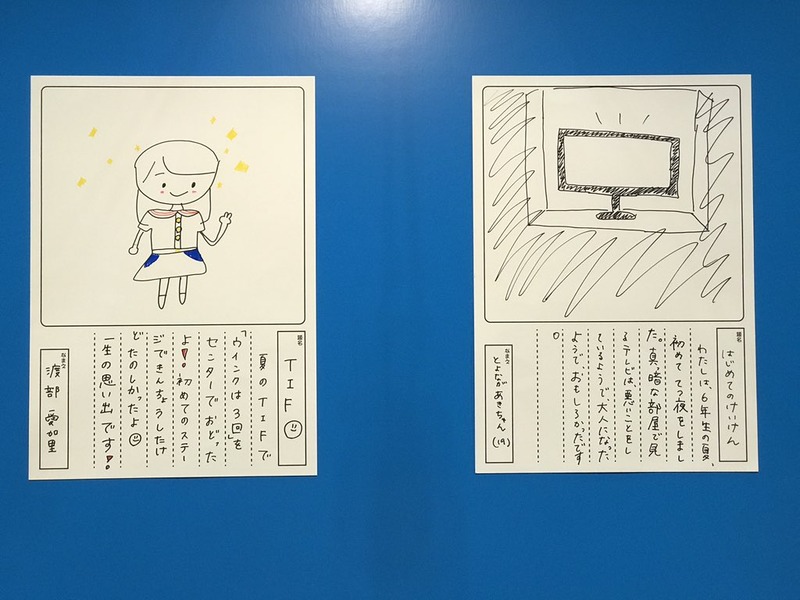 題名
TIF☺
夏のTIFで
「ウインクは3回」を
センターでおどった
よ!。初めてのステー
ジできんちょうしたけ
どたのしかったよ☺
一生の思い出です!。
なまえ
渡部 愛加里
題名
はじめてのけいけん
わたしは、6年生の夏、
初めててつ夜をしまし
た。真暗な部屋で見
るテレビは、悪いことをし
ているようで大人になった
ようで、おもしろかったです
。
なまえ
とよながあきちゃん(19)